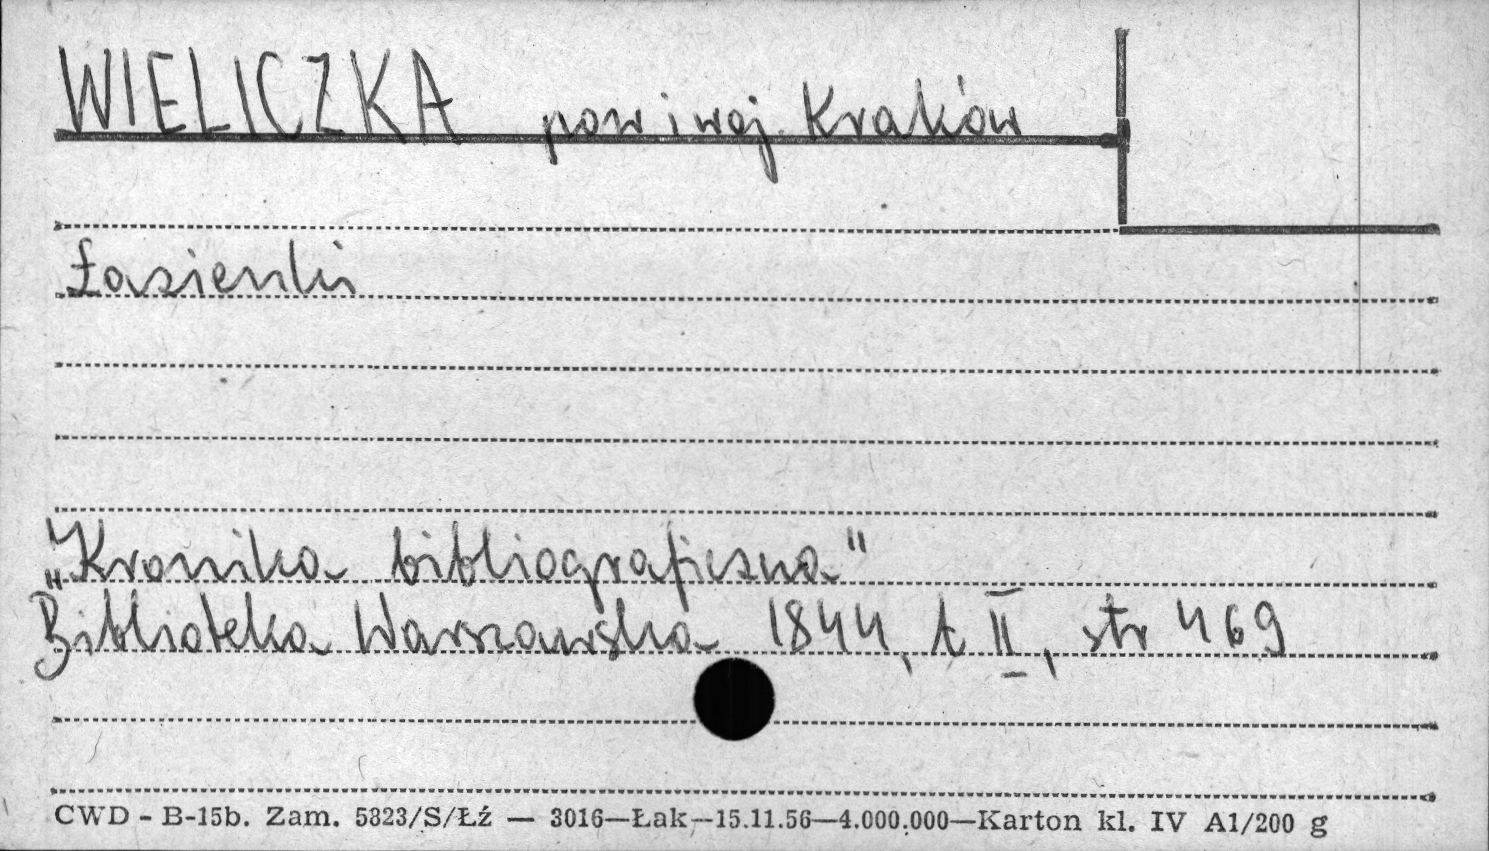 WIELICZKA pow i woj. Kraków
Łazienki
„Kronika bibliograficzna"
Biblioteka Warszawska 1844, t II, str 469
CWD - B-15b. Zam. 5323/S/Łź — 3016—Łak—15.11.56—4.000.000—Karton kl. IV A1/200 g